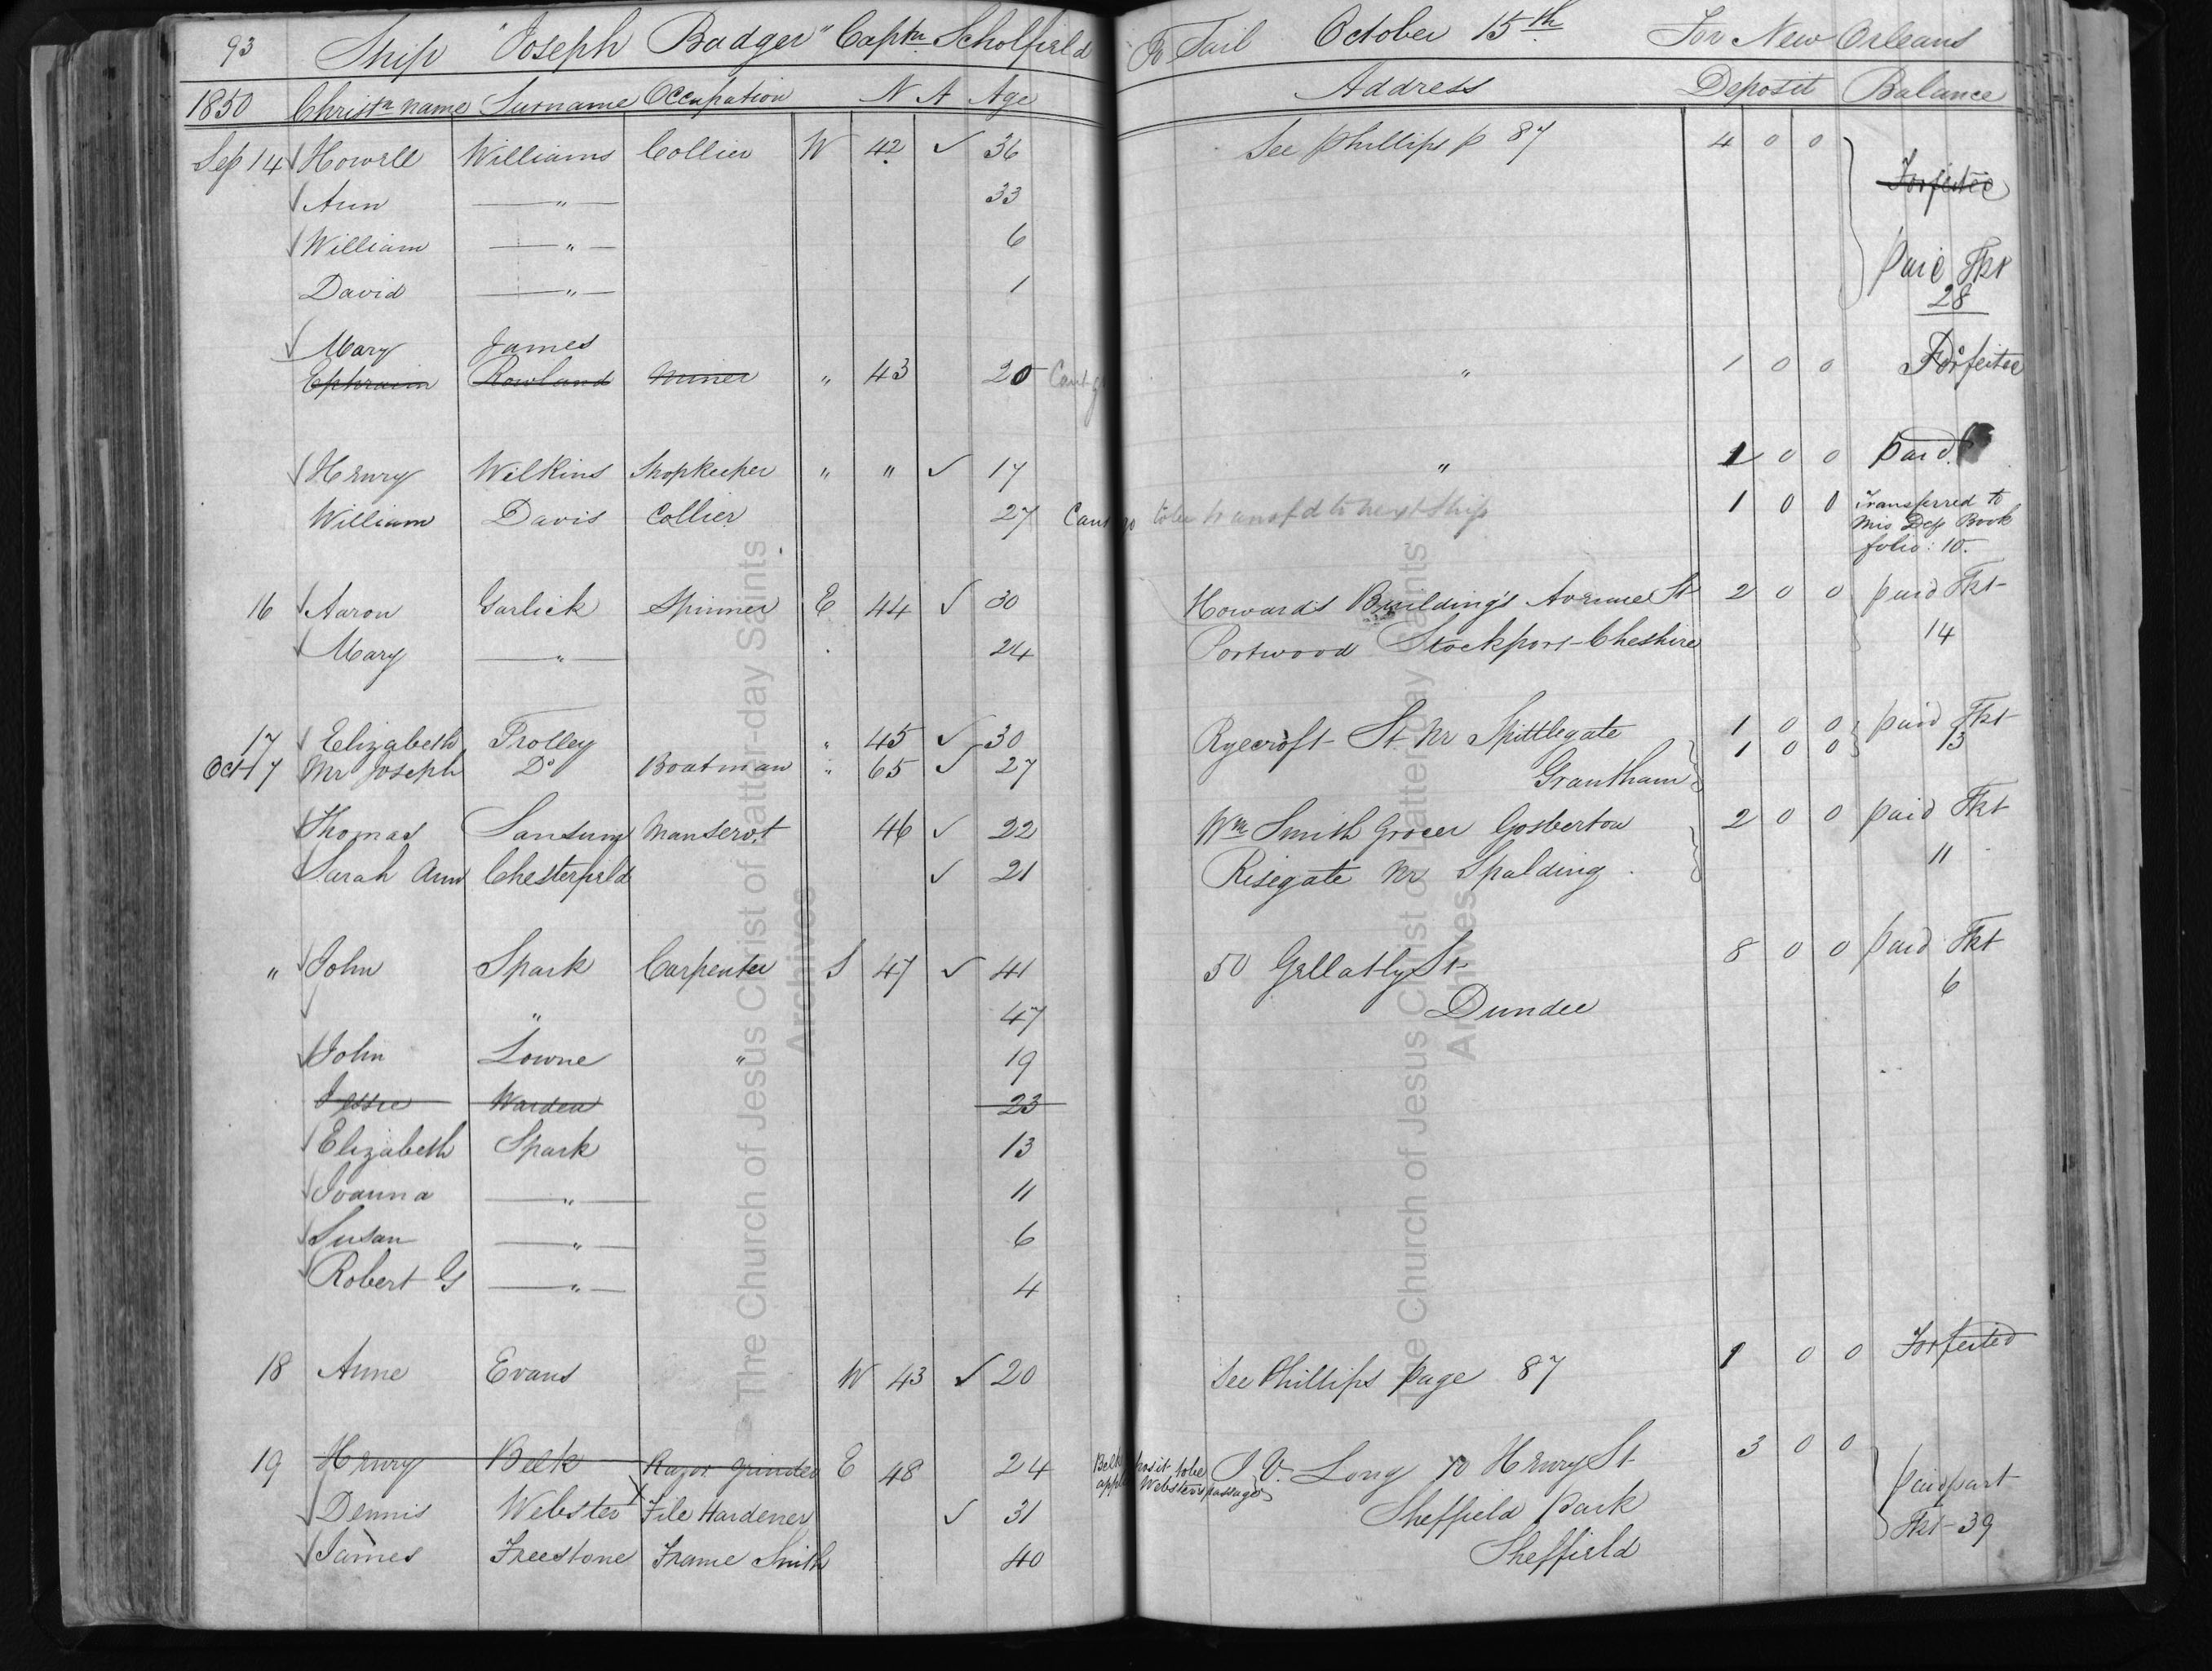 93 Ship "Joseph Badger" Captn Scholfield To Sail October 15th For New Orleans
1850 Christn name Surname Occupation N A Age Address Deposit Balance
Sep 14 Howell Williams Collier W 42 ✓ 36 See Phillips p 87 4 0 0 Forfeited
Ann " 33
William " 6 paid Tkt
David " 1 28
Mary James
Ephraim Rowland Miner " 43 20 Cant go " 1 0 0 Forfeited
Henry Wilkins Shopkeeper " " ✓ 17 " 1 0 0 paid
William Davis Collier 27 Cant go to be transfd to next Ship 1 0 0 Transferred to
Mis Dep Book
folio: 10.
16 Aaron Garlick Spinner E 44 ✓ 30 Howard's Building's Avenue St 2 0 0 paid Tkt
Mary " 24 Portwood Stockport Cheshire 14
17 Elizabeth Trolley " 45 ✓ 30 Ryecroft St Nr Spittlegate 1 0 0 paid Tkt
Oct 7 Mr Joseph Do Boatman " 65 ✓ 27 Grantham 1 0 0 13
Thomas Sansum Manservt. 46 ✓ 22 Wm Smith Grocer Gosberton 2 0 0 paid Tkt
Sarah Ann Chesterfield ✓ 21 Risegate Nr Spalding. 11
" John Spark Carpenter S 47 ✓ 41 50 Gellatly St 8 0 0 paid Tkt
" 47 Dundee 6
John Lowne " 19
Jessie Warden 23
Elizabeth Spark 13
Joanna " 11
Susan " 6
Robert G " 4
18 Anne Evans W 43 ✓ 20 See Phillips page 87 1 0 0 Forfeited
19 Henry Belk Razor grinder E 48 24 J. V. Long 70 Henry St 3 0 0
posit to be
Websters passage
Dennis Webster File Hardener ✓ 31 Sheffield Park paid part
James Freestone Frame Smith 40 Sheffield Tkt-39
The Church of Jesus Christ of Latter-day Saints
Archives
The Church of Jesus Christ of Latter-day Saints
Archives